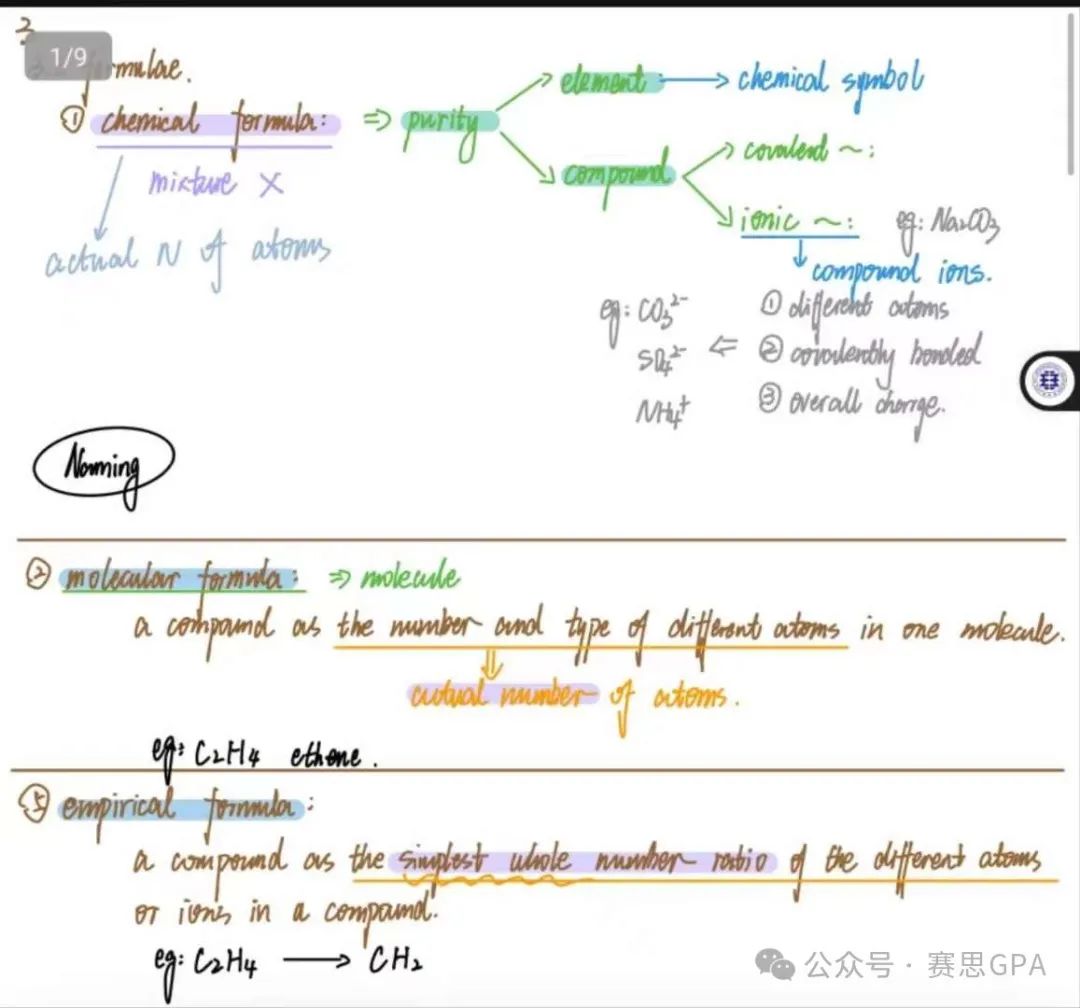 3
1/9
formulae.
① chemical formula: ⇒ purity
element → chemical symbol
compound
covalent ~:
ionic ~: eg: Na₂CO₃
compound ions.
mixture ×
actual N of atoms
① different atoms
② covalently bonded
③ overall charge.
eg: CO₃²⁻
SO₄²⁻ ⇐
NH₄⁺
Naming
② molecular formula: ⇒ molecule
a compound as the number and type of different atoms in one molecule.
actual number of atoms.
eg: C₂H₄ ethene.
③ empirical formula:
a compound as the simplest whole number ratio of the different atoms
or ions in a compound.
eg: C₂H₄ → CH₂
公众号 · 赛思GPA